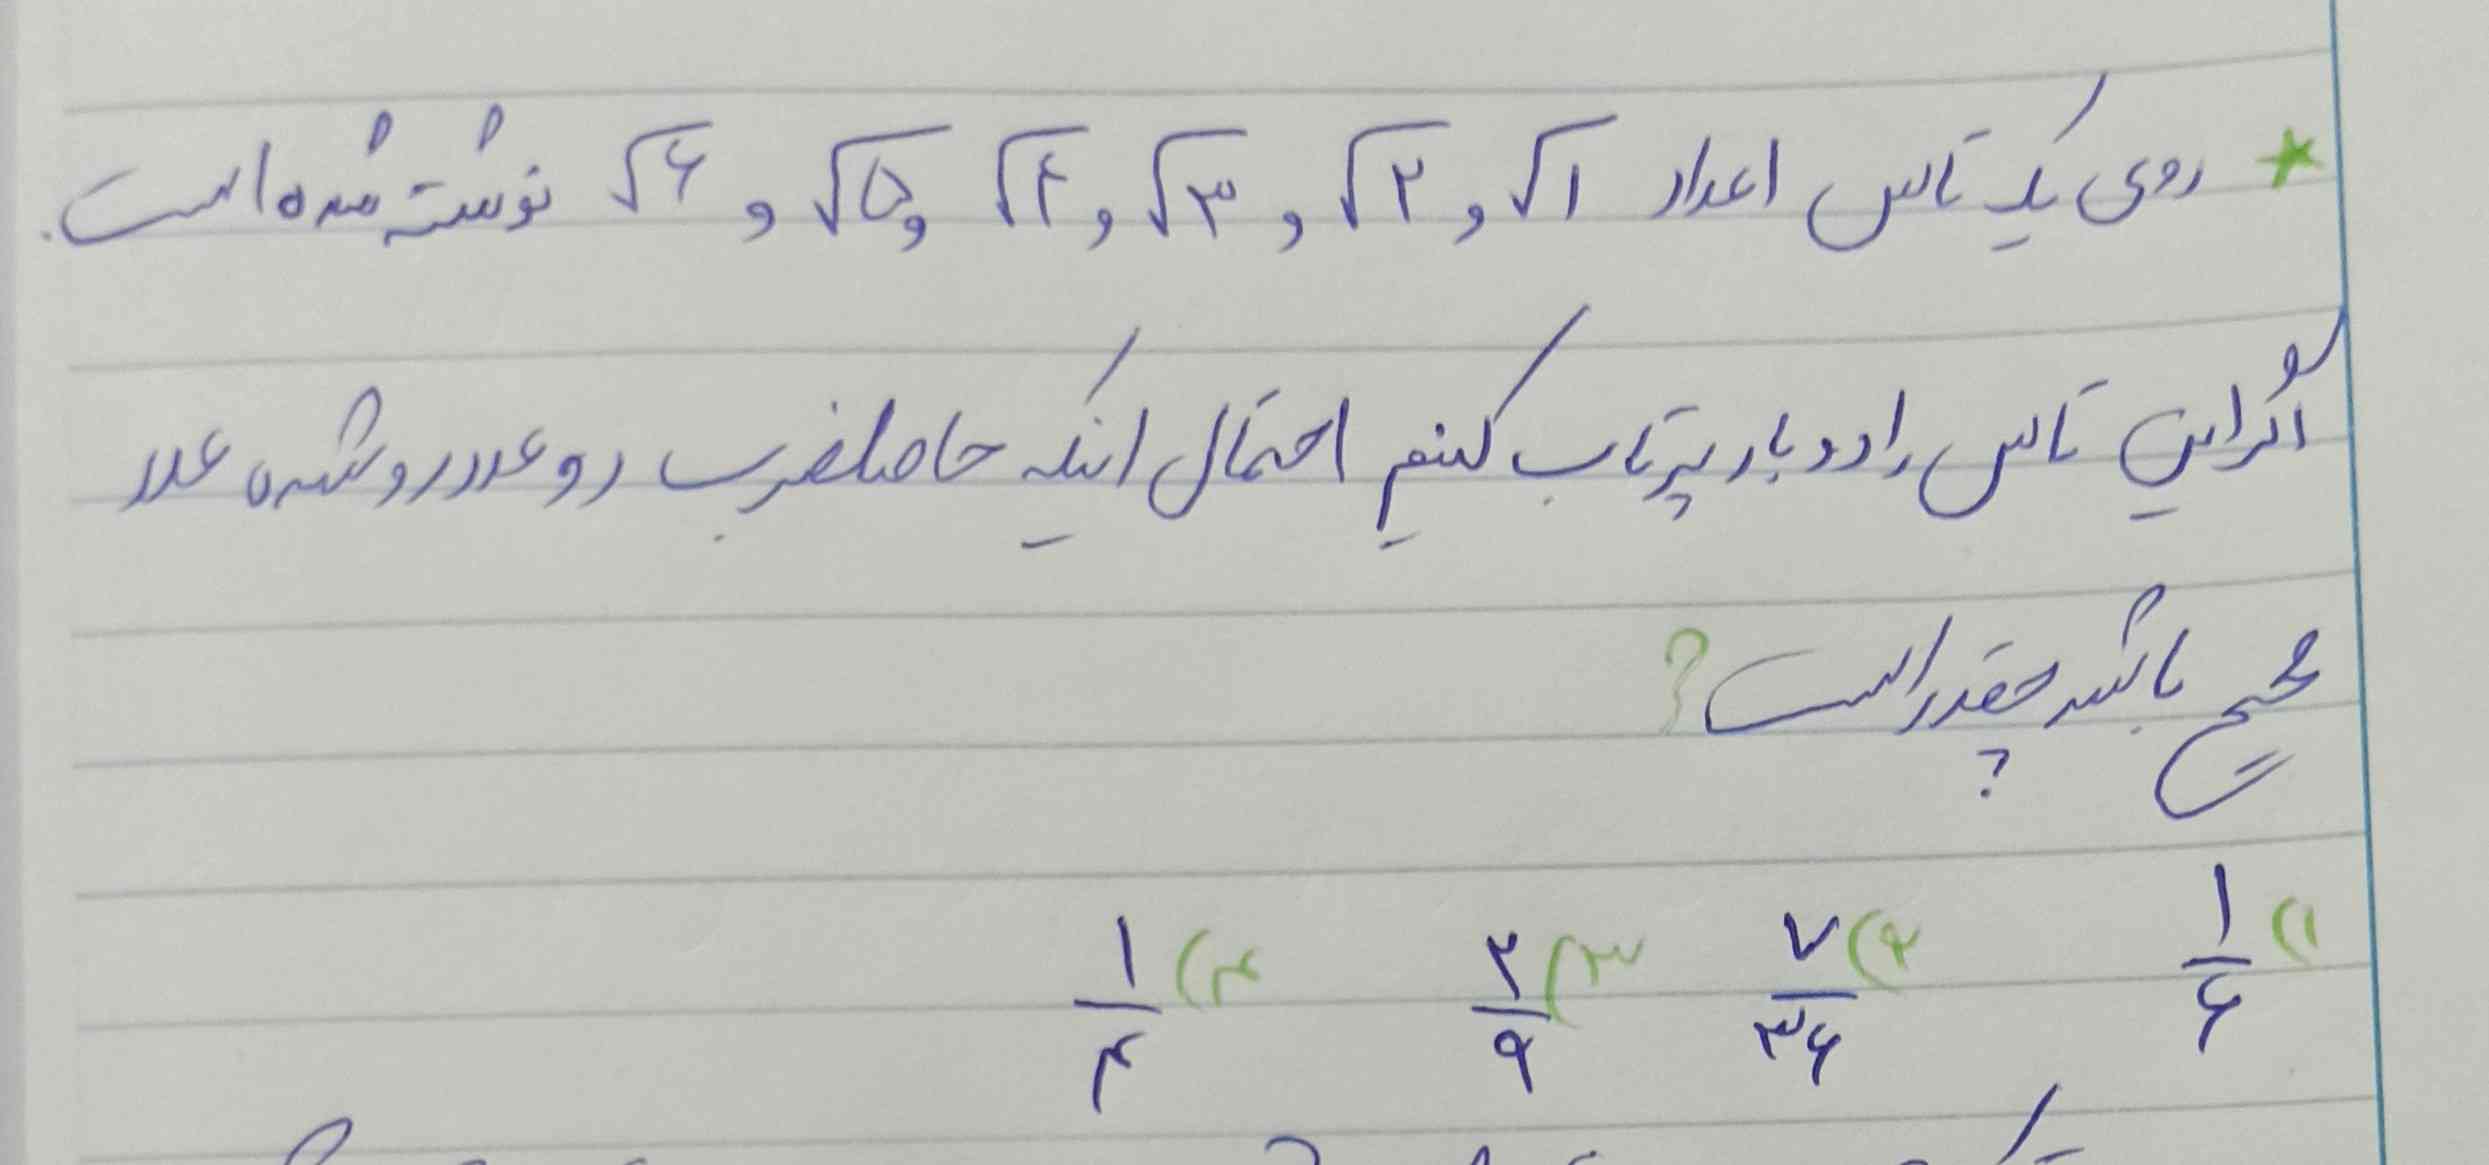 * روی یک تاس اعداد √۱ و √۲ و √۳ و √۴ و √۵ و √۶ نوشته شده است.
اگر این تاس را دو بار پرتاب کنیم احتمال اینکه حاصلضرب دو عدد رو شده عدد
صحیح باشد چقدر است؟
?
۱) ۱/۶ ۲) ۷/۳۶ ۳) ۲/۹ ۴) ۱/۴